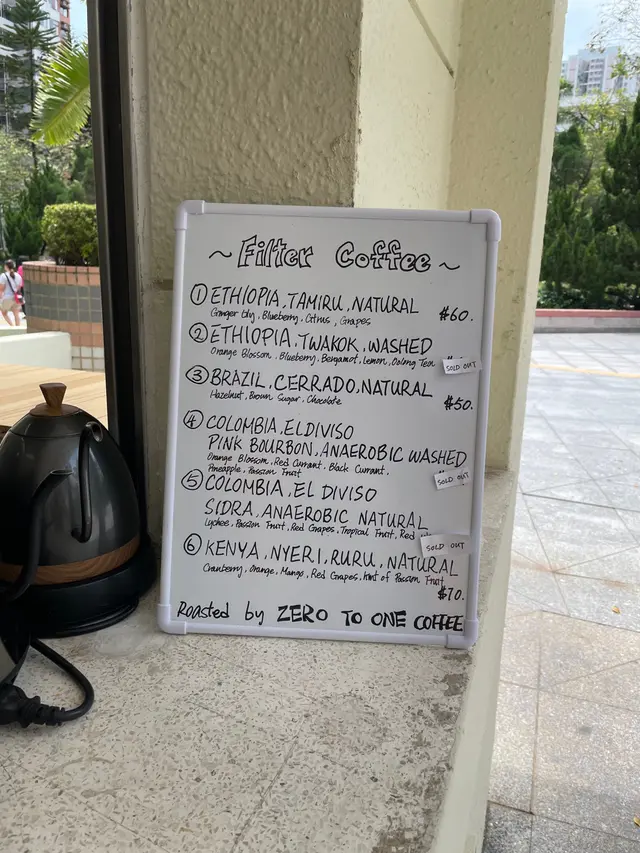 ~ Filter Coffee ~
① ETHIOPIA, TAMIRU, NATURAL
Ginger Lily, Blueberry, Citrus, Grapes
$60.
② ETHIOPIA, TWAKOK, WASHED
Orange Blossom, Blueberry, Bergamot, Lemon, Oolong Tea
SOLD OUT
③ BRAZIL, CERRADO, NATURAL
Hazelnut, Brown Sugar, Chocolate
$50.
④ COLOMBIA, ELDIVISO
PINK BOURBON, ANAEROBIC WASHED
Orange Blossom, Red Currant, Black Currant,
Pineapple, Passion Fruit
SOLD OUT
⑤ COLOMBIA, EL DIVISO
SIDRA, ANAEROBIC NATURAL
Lychee, Passion Fruit, Red Grapes, Tropical Fruit, Red
SOLD OUT
⑥ KENYA, NYERI, RURU, NATURAL
Cranberry, Orange, Mango, Red Grapes, Hint of Passion Fruit
$70.
Roasted by ZERO TO ONE COFFEE